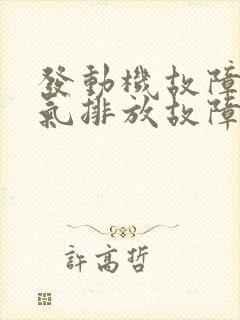 發動機故障
氣排放故障
許高哲